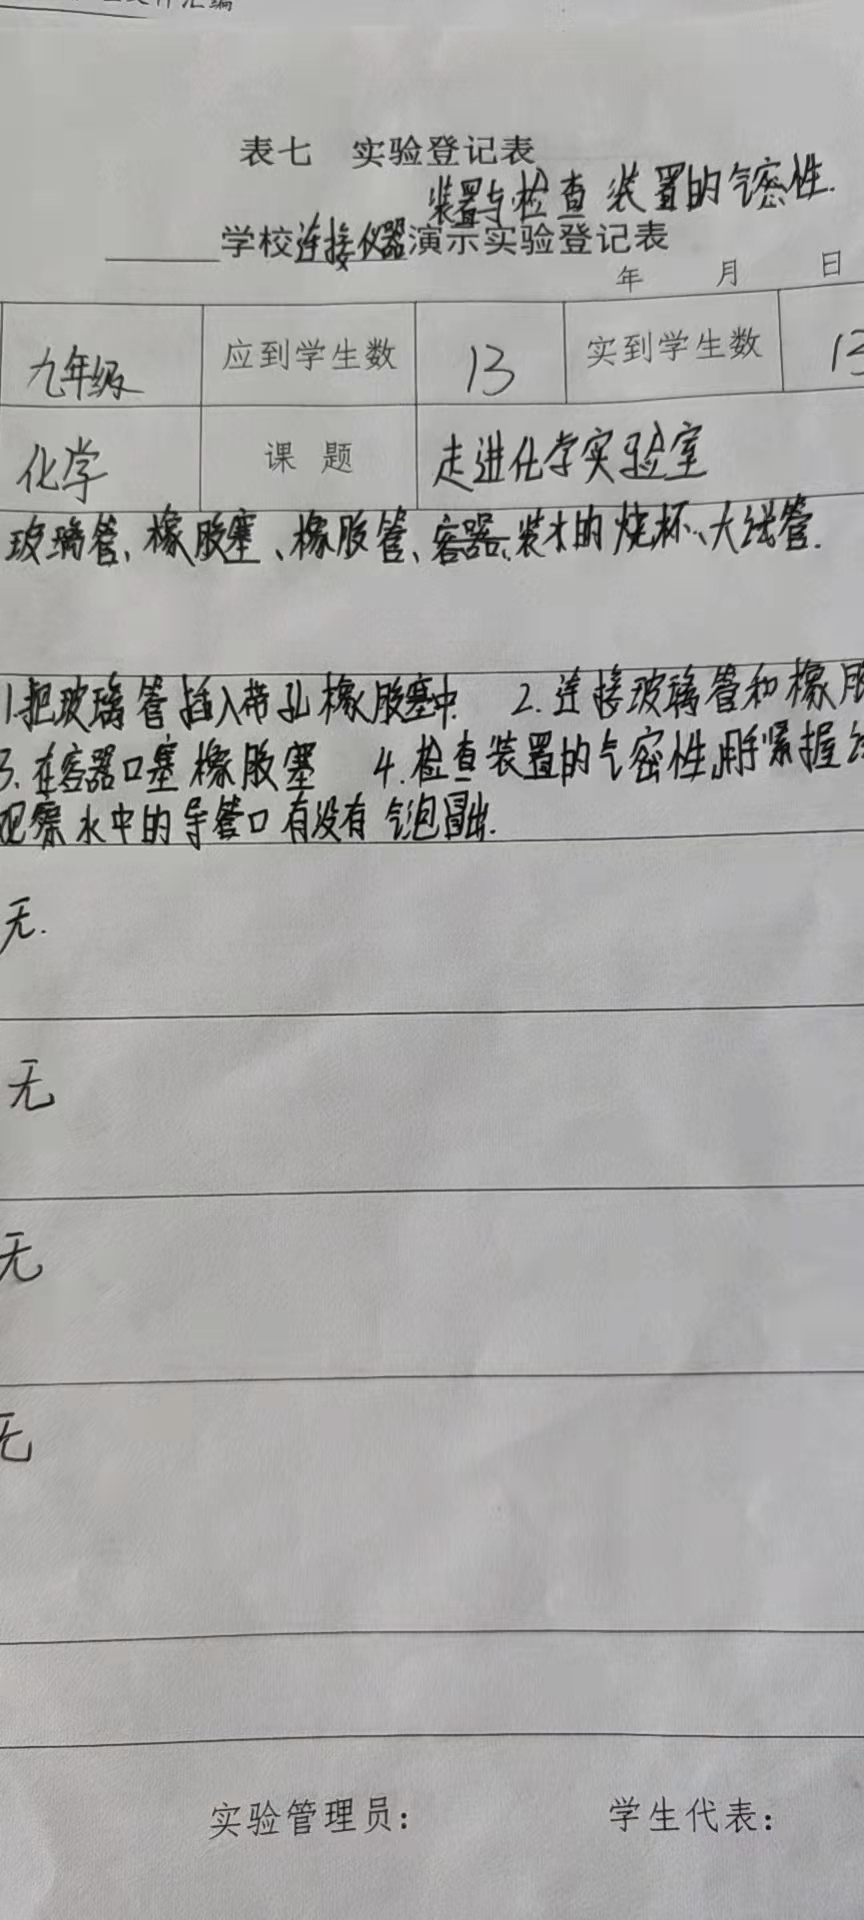 汇编
表七 实验登记表
装置与检查装置的气密性.
学校连接仪器演示实验登记表
年 月 日
九年级 应到学生数 13 实到学生数 13
化学 课题 走进化学实验室
玻璃管、橡胶塞、橡胶管、容器、装水的烧杯、大试管.
1.把玻璃管插入带孔橡胶塞中. 2.连接玻璃管和橡胶
3.在容器口塞橡胶塞 4.检查装置的气密性,用手紧握
观察水中的导管口有没有气泡冒出.
无.
无
无
无
实验管理员: 学生代表: